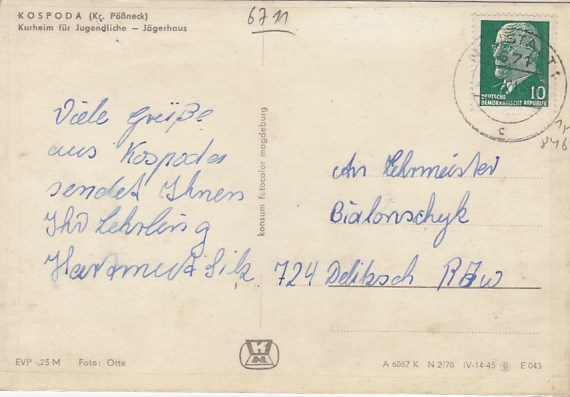 KOSPODA (Kr. Pößneck)
Kurheim für Jugendliche – Jägerhaus
67 11
DEUTSCHE
DEMOKRATISCHE REPUBLIK
10
c
846
konsum fotocolor magdeburg
Viele Grüße
aus Kospoda
sendet Ihnen
Ihr Lehrling
Hartmut Silz
An Lehrmeister
Bialonschyk
724 Delitzsch RAW
EVP -,25 M Foto: Otte
A 6067 K N 2/70 IV-14-45 E 043